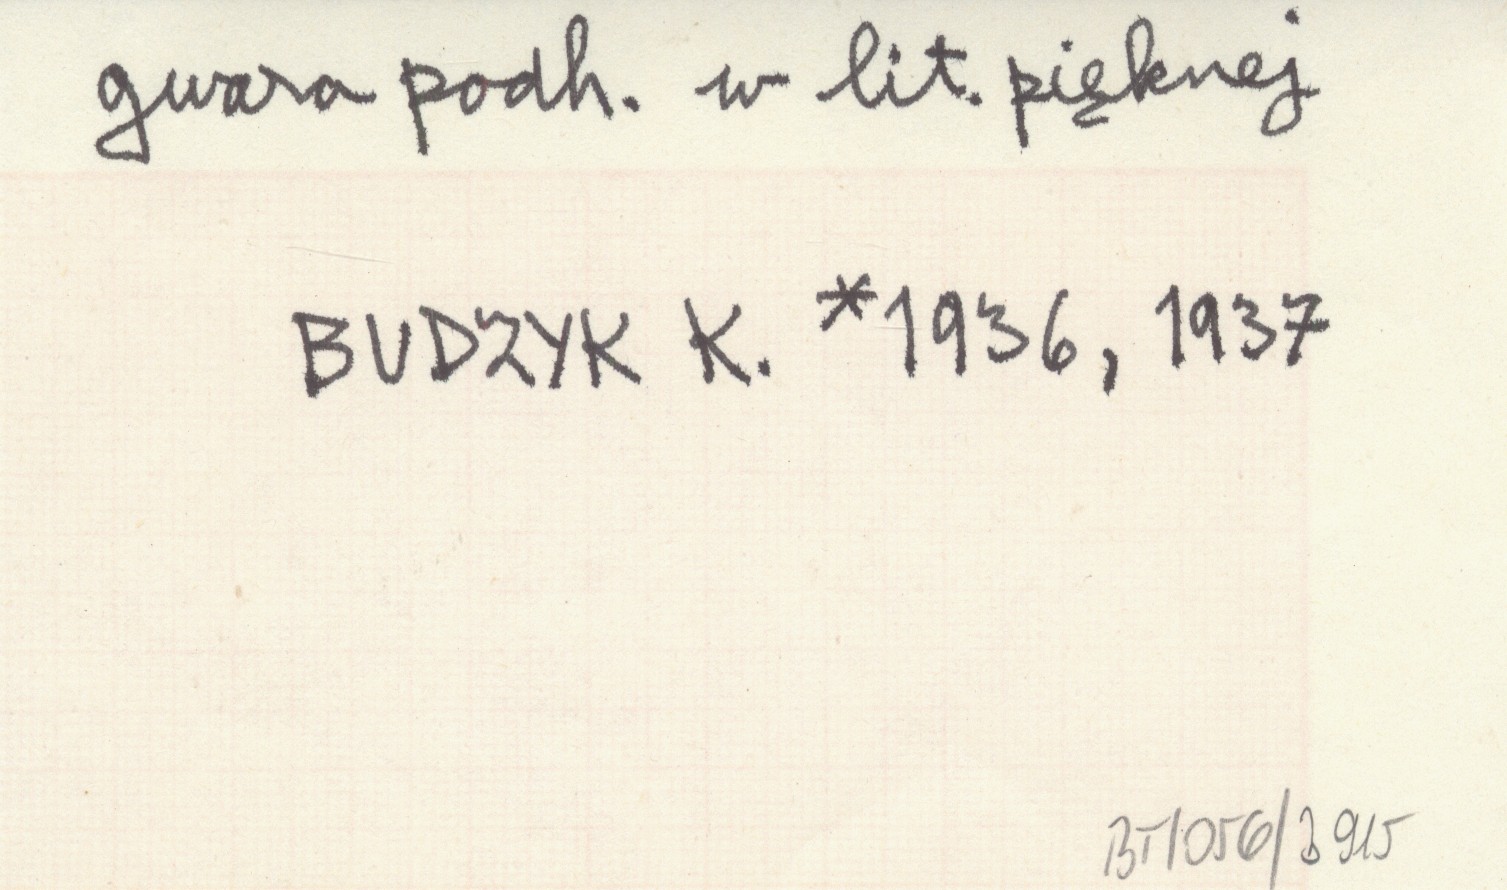 gwara podh. w lit. pięknej
BUDZYK K. *1936, 1937
BT/056/3915